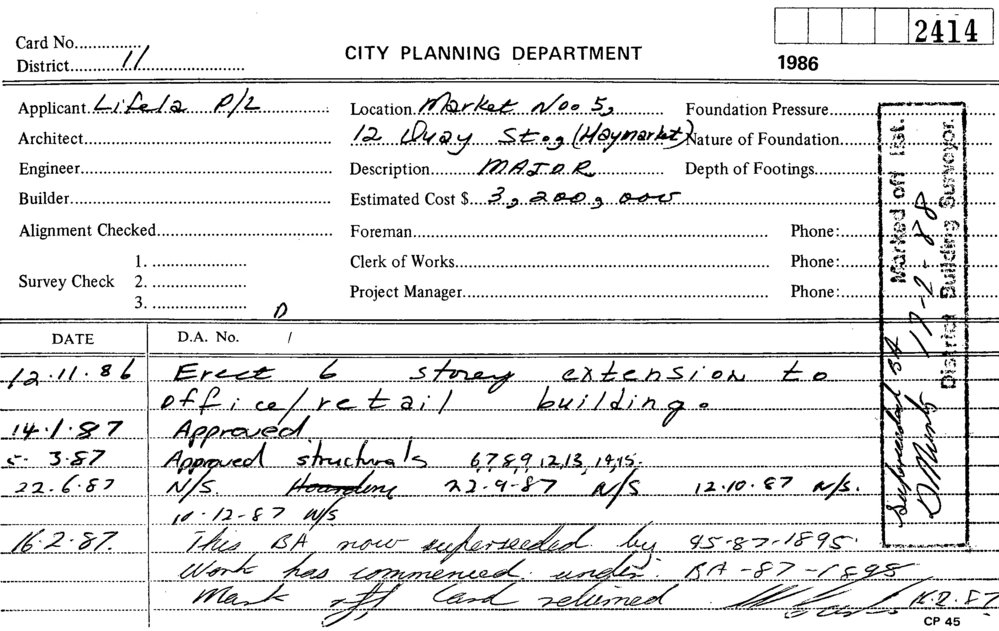 Card No...............
District........11........
CITY PLANNING DEPARTMENT
2414
1986
Applicant Lifela P/L
Location Market No. 5,
Foundation Pressure
Architect
12 Quay St., (Haymarket)
Nature of Foundation
Engineer
Description MAJOR
Depth of Footings
Builder
Estimated Cost $ 3,200,000
Alignment Checked
Foreman
Phone:
Survey Check
1.
2.
3.
Clerk of Works
Phone:
Project Manager
Phone:
D
DATE
D.A. No. /
12.11.86 Erect 6 storey extension to
office/retail building.
14.1.87 Approved
5.3.87 Approved structurals 6,7,8,9,12,13,14,15.
22.6.87 N/S. Hoarding 22.9.87 N/S 12.10.87 N/S.
10.12.87 N/S
16.2.87. This BA now superseeded by 95-87-1895.
Work has commenced under BA-87-1895
Mark off Card returned 16.2.87
CP 45
Marked off list.
17-2-88
District Building Surveyor.
Superseded BA